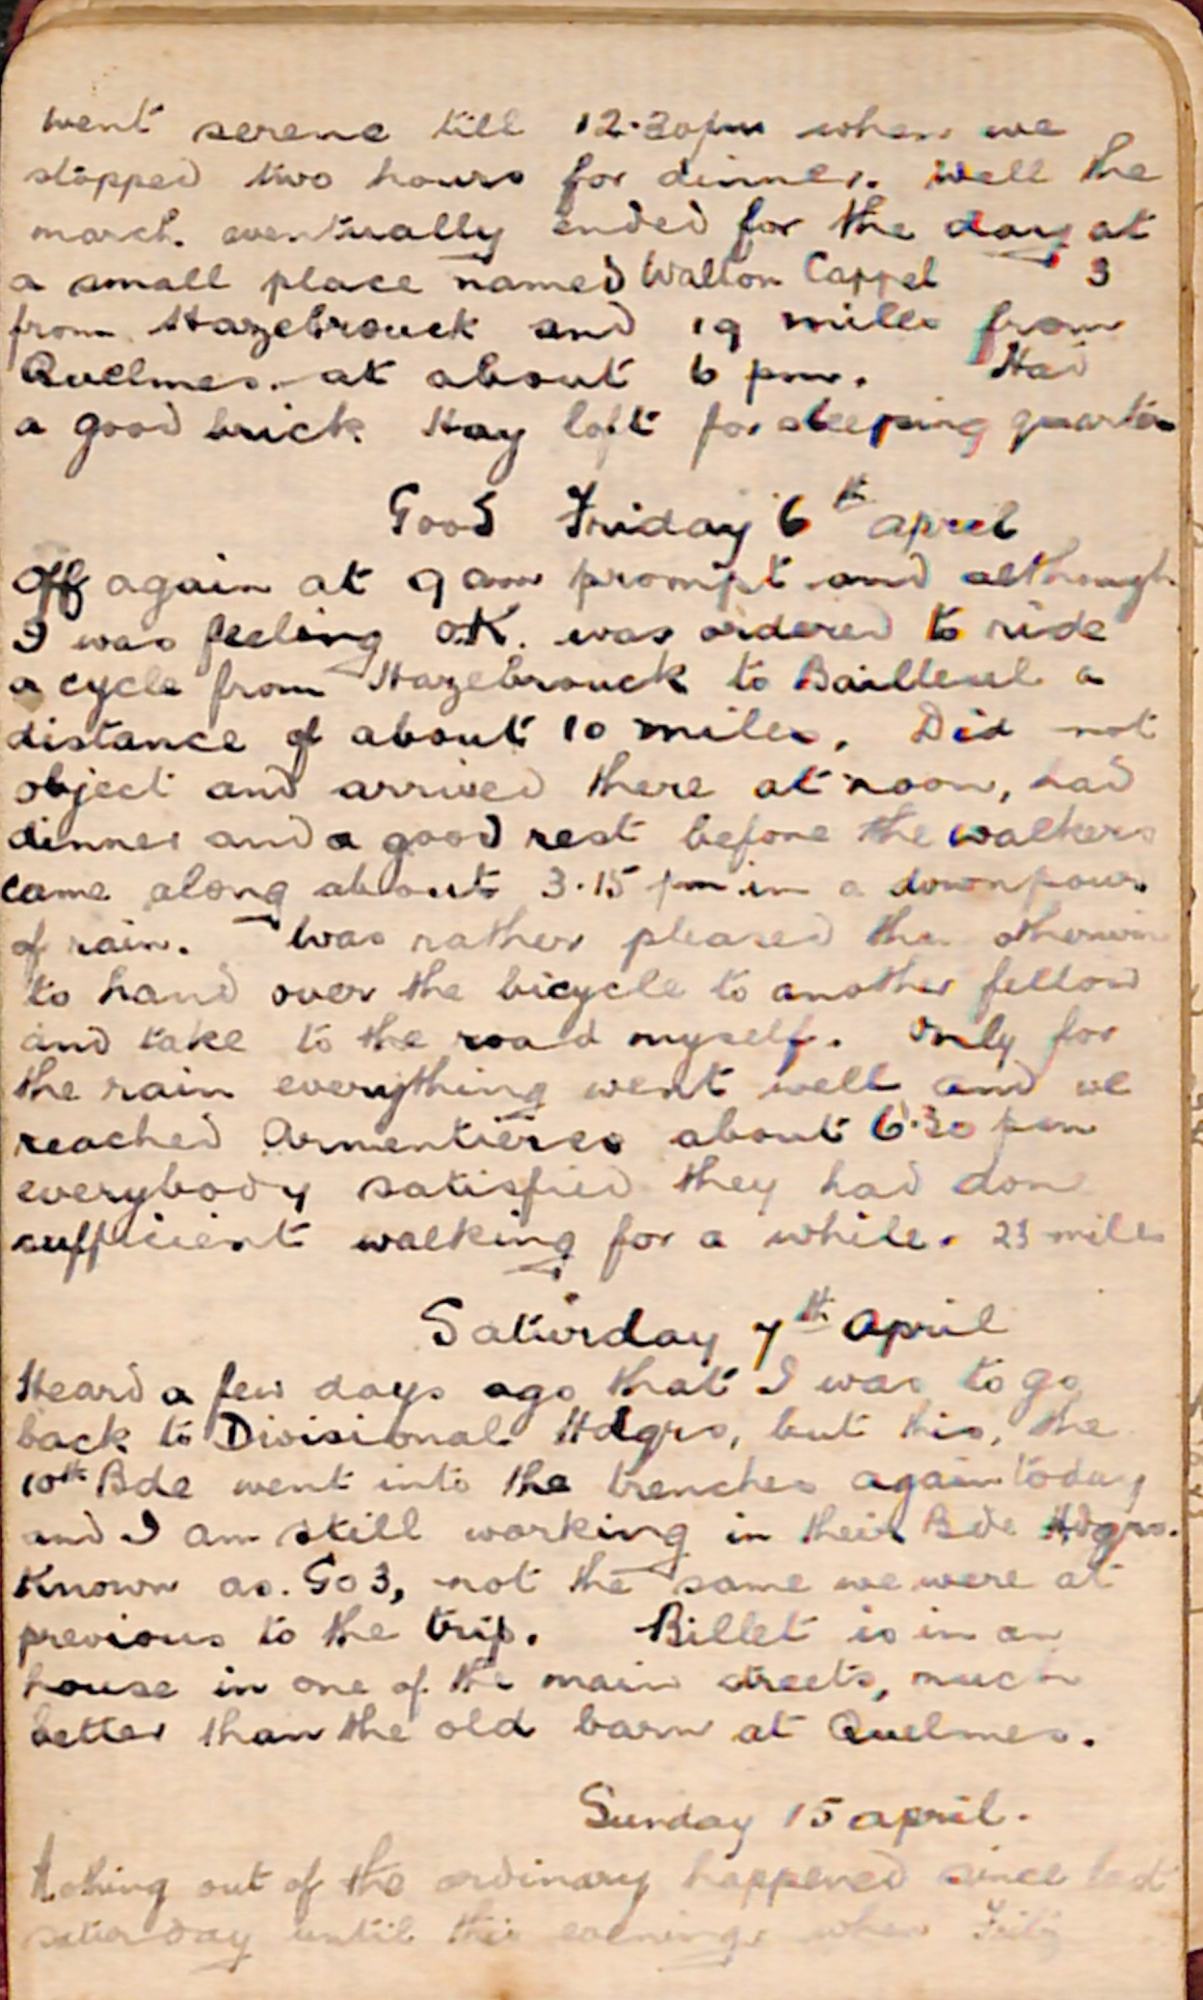 went serene till 12.30pm when we
stopped two hours for dinner. Well the
march eventually ended for the day at
a small place named Wallon Cappel 3
from Hazebrouck and 19 miles from
Quelmes at about 6 pm. Had
a good brick Hay loft for sleeping quarters
Good Friday 6th April
Off again at 9 am prompt and although
I was feeling O.K. was ordered to ride
a cycle from Hazebrouck to Bailleul a
distance of about 10 miles. Did not
object and arrived there at noon, had
dinner and a good rest before the walkers
came along about 3.15 pm in a downpour
of rain. Was rather pleased than otherwise
to hand over the bicycle to another fellow
and take to the road myself. Only for
the rain everything went well and we
reached Armentieres about 6.30 pm
everybody satisfied they had done
sufficient walking for a while. 23 miles
Saturday 7th April
Heard a few days ago that I was to go
back to Divisional Hdqrs, but this, the
10th Bde went into the trenches again today
and I am still working in their Bde Hdqrs.
Known as. Go3, not the same we were at
previous to the trip. Billet is in an
house in one of the main streets, much
better than the old barn at Quelmes.
Sunday 15 April.
Nothing out of the ordinary happened since last
Saturday until this evening when